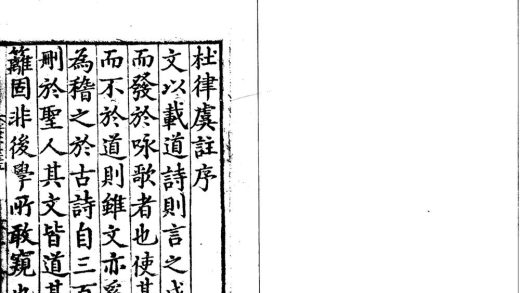 杜律虞註序
文以載道詩則言之成
而發於咏歌者也使其
而不於道則雖文亦奚
為稽之於古詩自三百
刪於聖人其文皆道其
籬固非後學所敢窺也